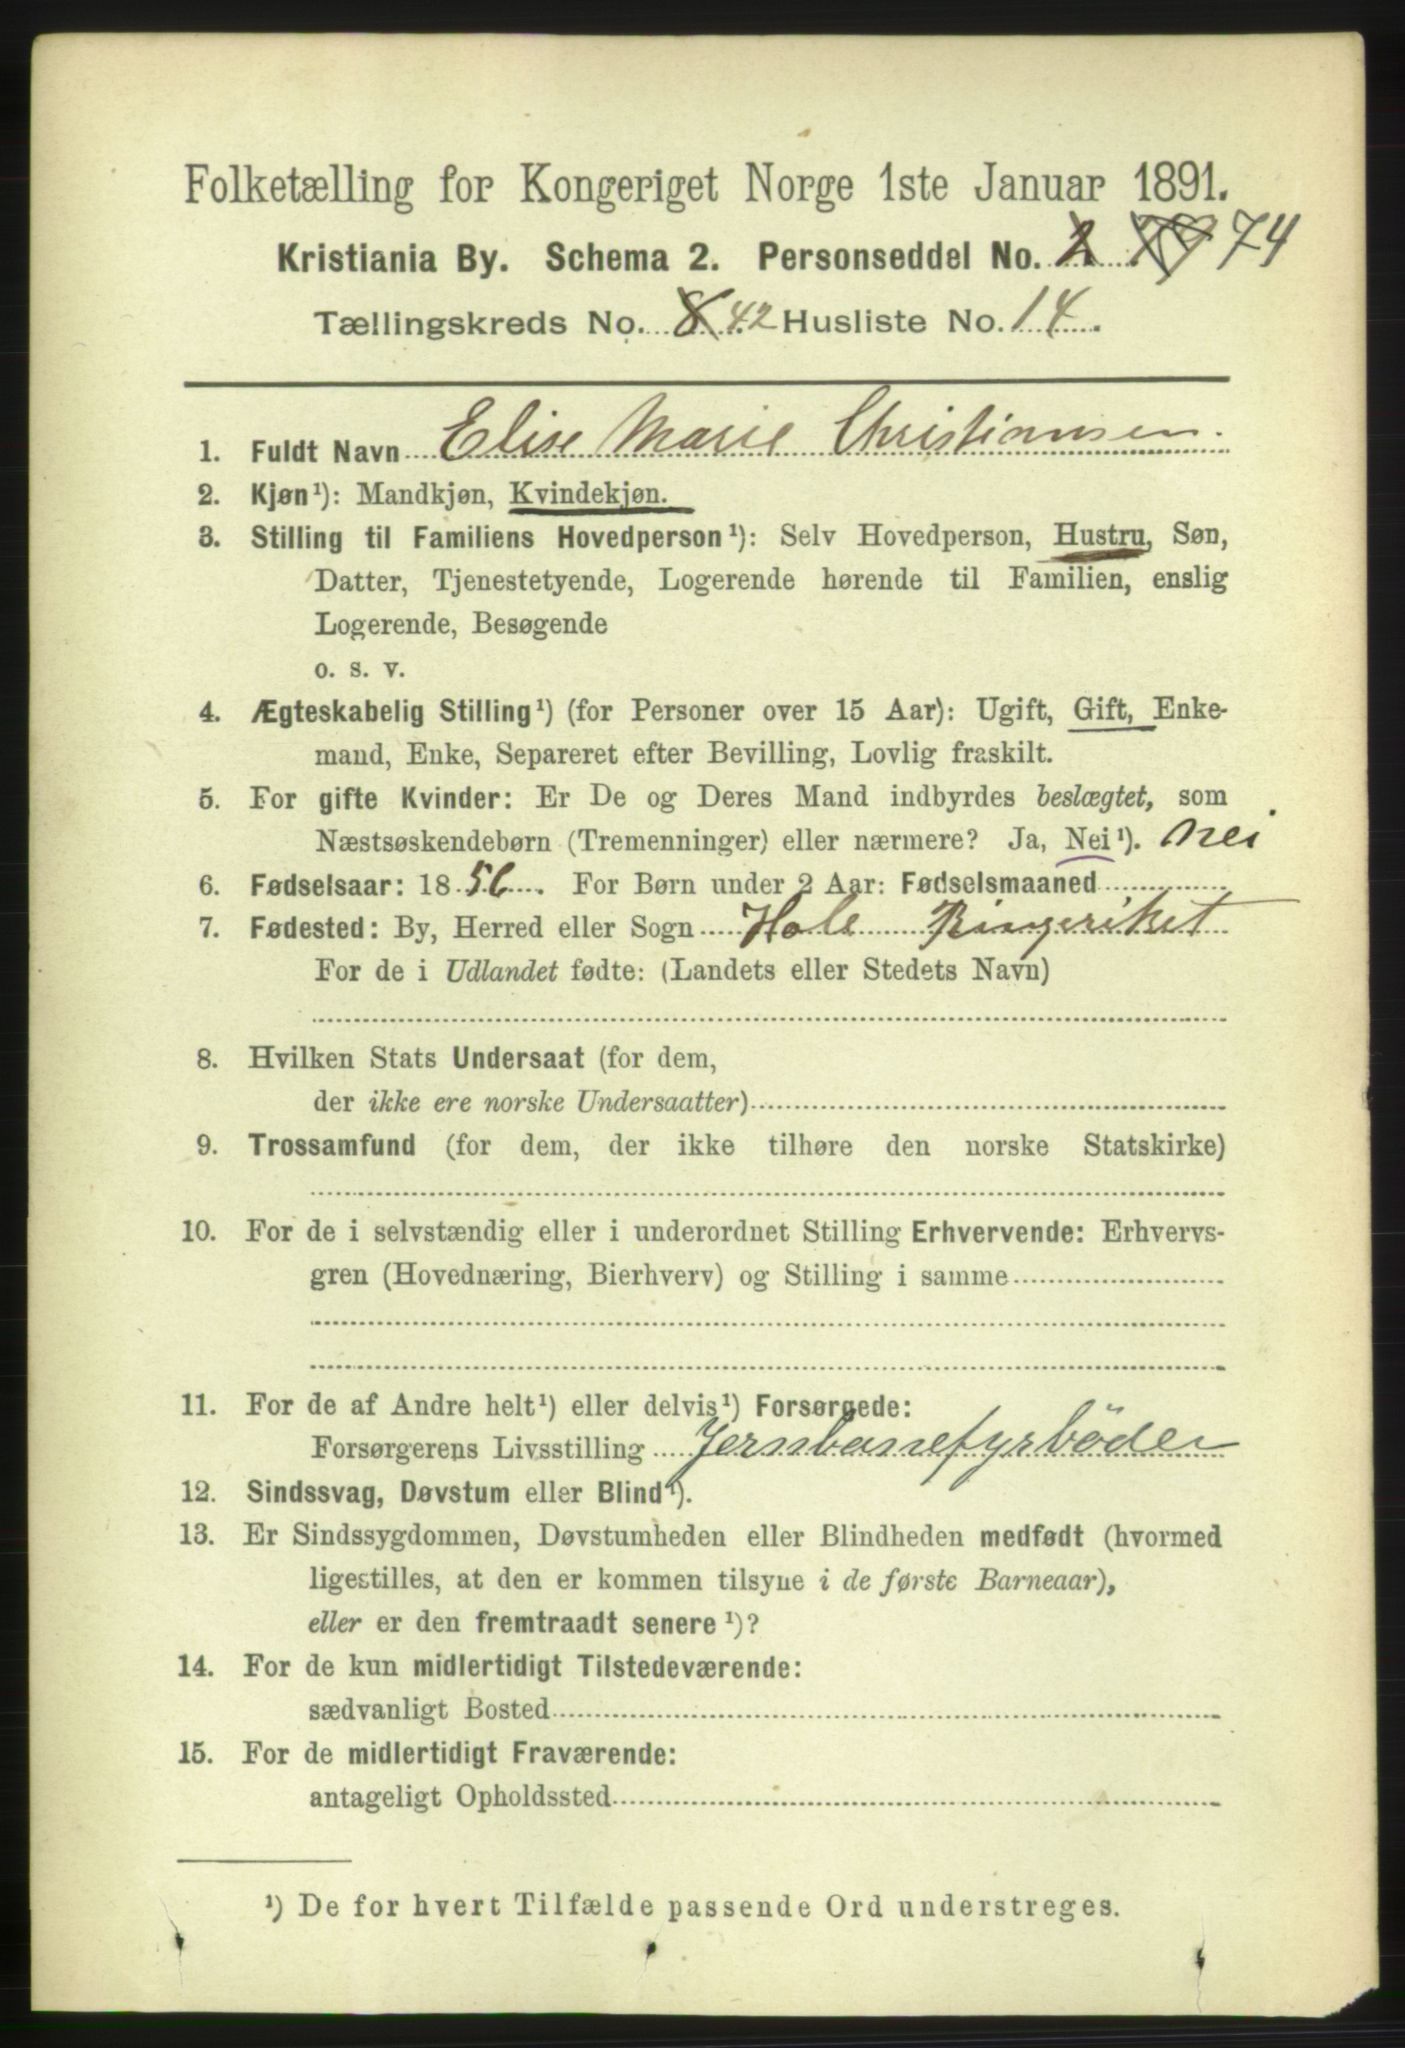 Folketælling for Kongeriget Norge 1ste Januar 1891.
Kristiania By. Schema 2. Personseddel No. 2 74
Tællingskreds No. 8 42 Husliste No. 14.
1. Fuldt Navn Elise Marie Christiansen.
2. Kjøn¹): Mandkjøn, Kvindekjøn.
3. Stilling til Familiens Hovedperson¹): Selv Hovedperson, Hustru, Søn,
Datter, Tjenestetyende, Logerende hørende til Familien, enslig
Logerende, Besøgende
o. s. v.
4. Ægteskabelig Stilling¹) (for Personer over 15 Aar): Ugift, Gift, Enke-
mand, Enke, Separeret efter Bevilling, Lovlig fraskilt.
5. For gifte Kvinder: Er De og Deres Mand indbyrdes beslægtet, som
Næstsøskendebørn (Tremenninger) eller nærmere? Ja, Nei¹). Nei
6. Fødselsaar: 1856. For Børn under 2 Aar: Fødselsmaaned
7. Fødested: By, Herred eller Sogn Hole Ringeriket
For de i Udlandet fødte: (Landets eller Stedets Navn)
8. Hvilken Stats Undersaat (for dem,
der ikke ere norske Undersaatter)
9. Trossamfund (for dem, der ikke tilhøre den norske Statskirke)
10. For de i selvstændig eller i underordnet Stilling Erhvervende: Erhvervs-
gren (Hovednæring, Bierhverv) og Stilling i samme
11. For de af Andre helt¹) eller delvis¹) Forsørgede:
Forsørgerens Livsstilling Jernbanefyrböder
12. Sindssvag, Døvstum eller Blind¹).
13. Er Sindssygdommen, Døvstumheden eller Blindheden medfødt (hvormed
ligestilles, at den er kommen tilsyne i de første Barneaar),
eller er den fremtraadt senere¹)?
14. For de kun midlertidigt Tilstedeværende:
sædvanligt Bosted
15. For de midlertidigt Fraværende:
antageligt Opholdssted
¹) De for hvert Tilfælde passende Ord understreges.